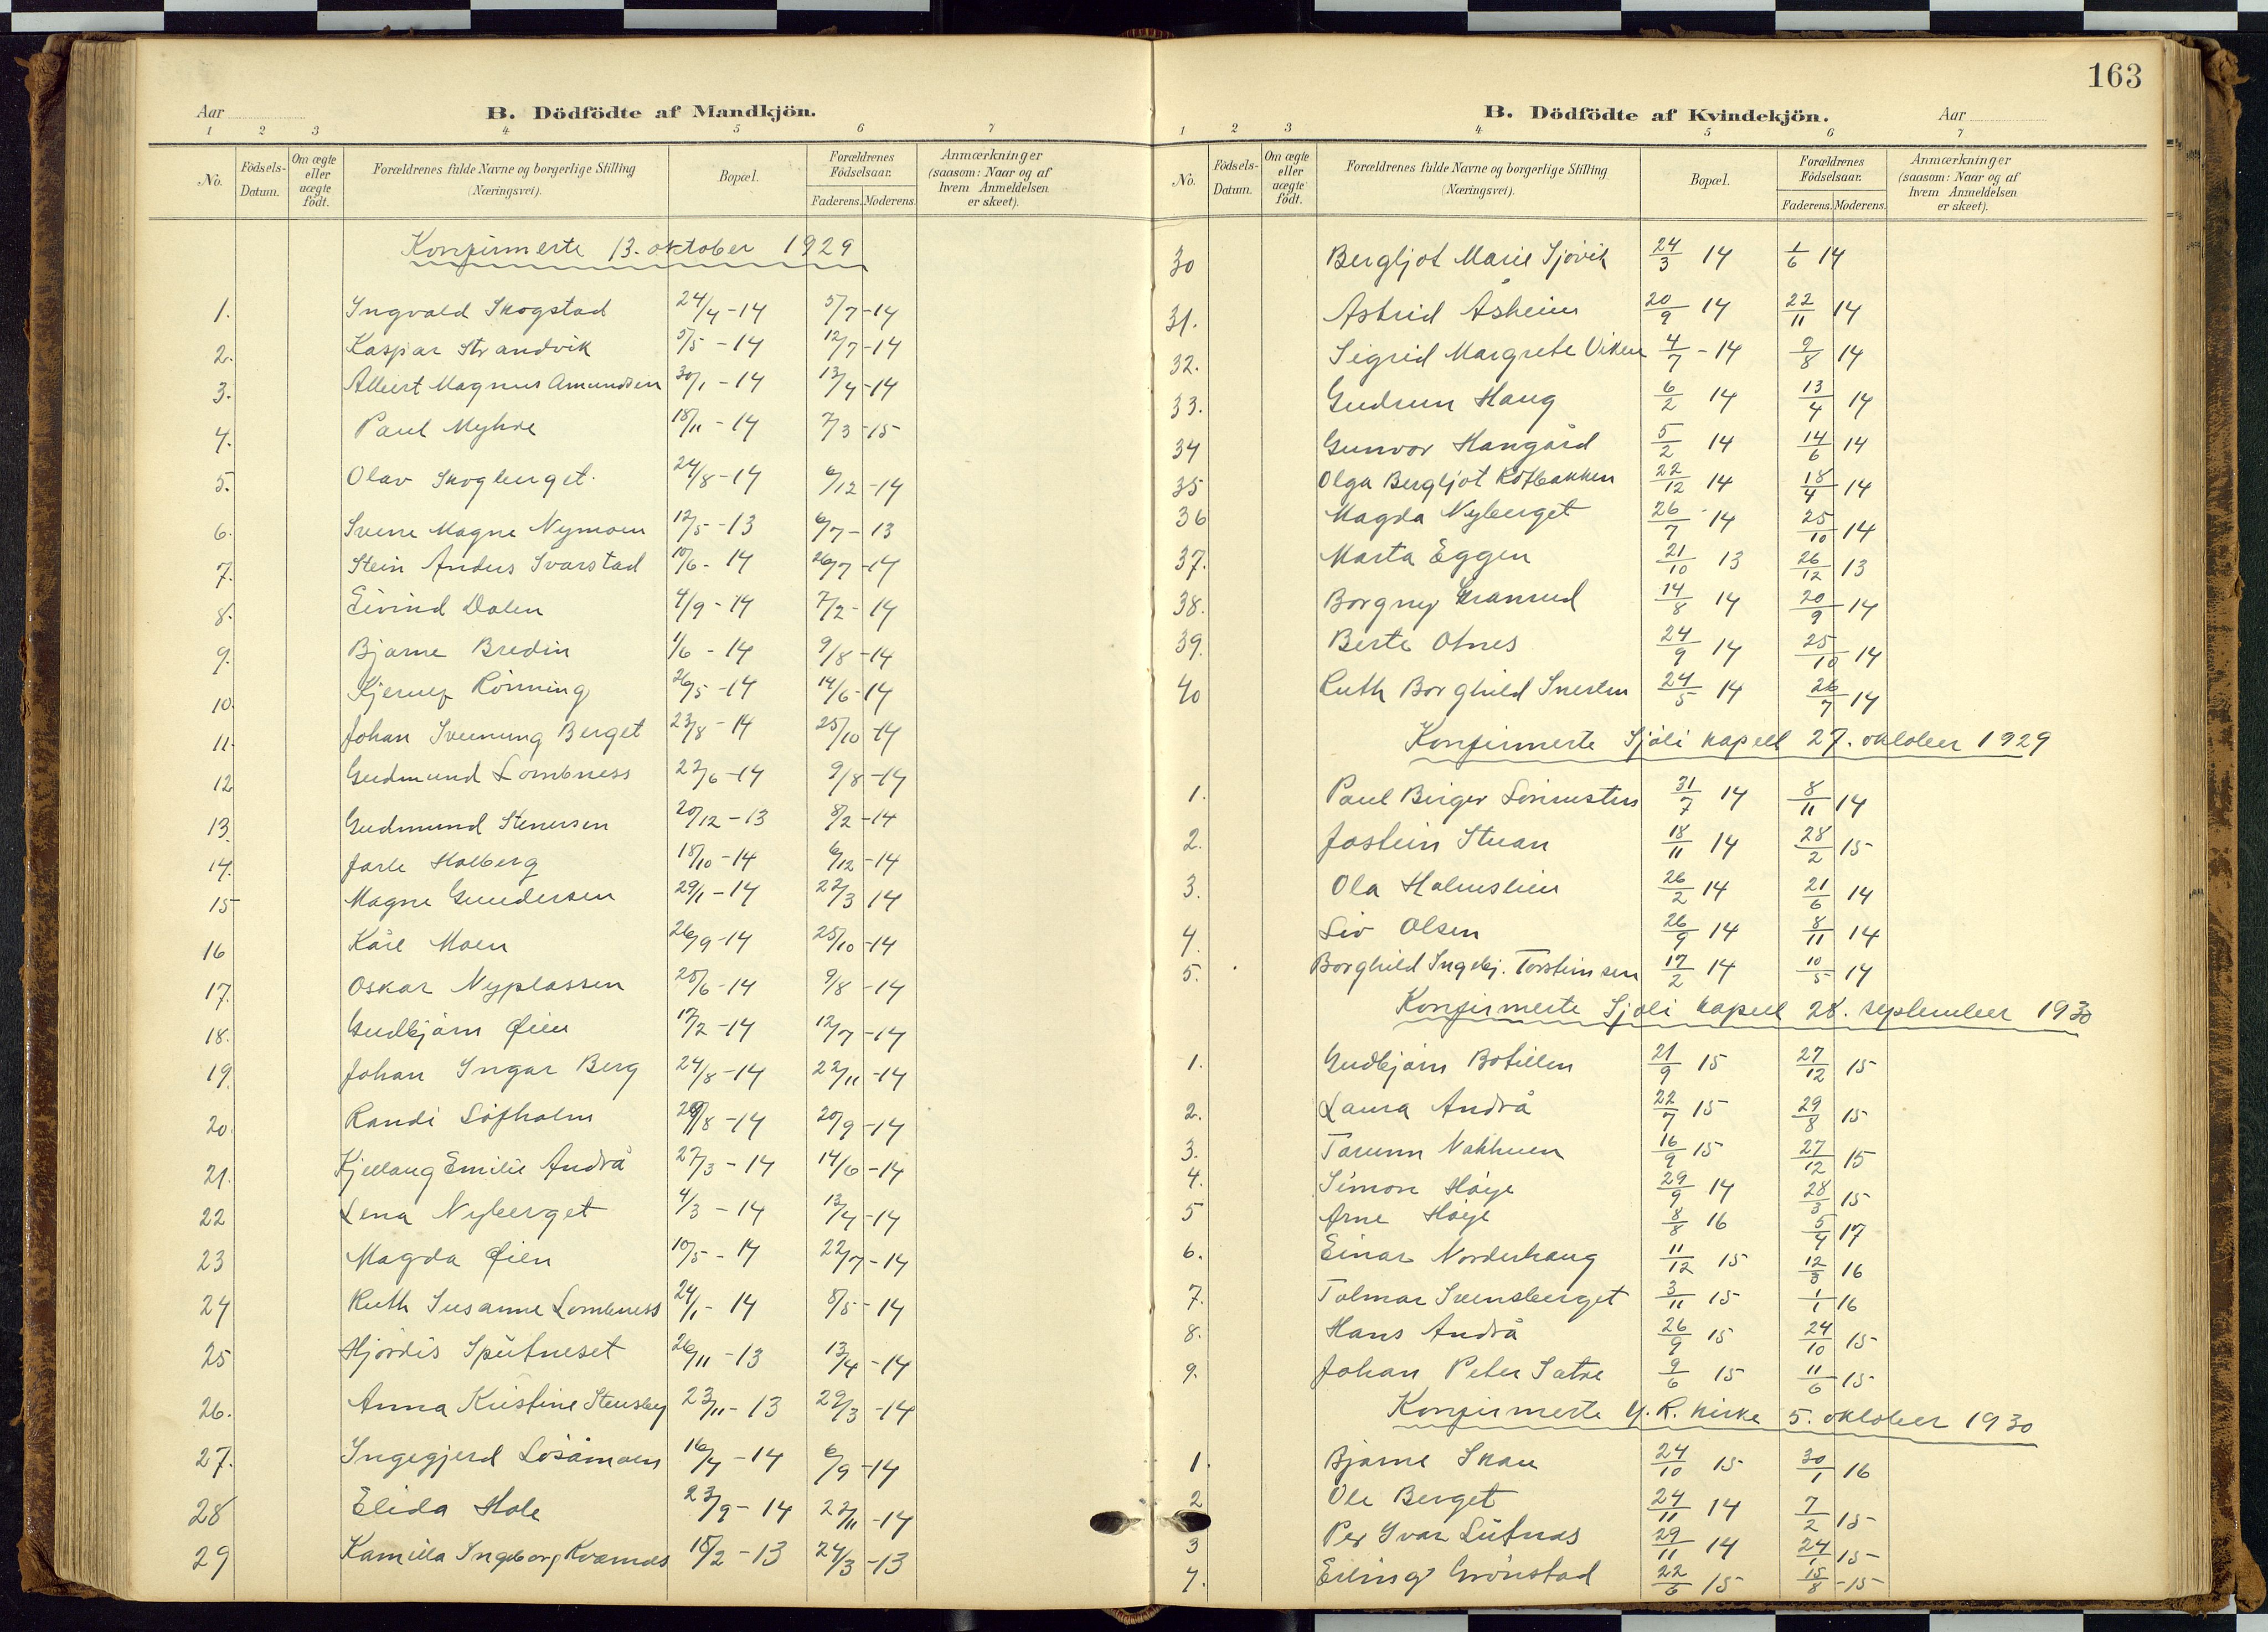 163
Aar
B. Dödfödte af Mandkjön.
1 2 3 4 5 6 7
No.
Födsels-Datum.
Om ægte eller uægte födt.
Forældrenes fulde Navne og borgerlige Stilling (Næringsvei).
Bopæl.
Forældrenes Födselsaar.
Faderens. Moderens.
Anmærkninger (saasom: Naar og af hvem Anmeldelsen er skeet).
Konfirmerte 13. oktober 1929
1. Ingvald Skogstad 24/4 -14 5/7 -14
2. Kaspar Strandvik 5/5 -14 12/7 -14
3. Albert Magnus Amundsen 30/1 -14 13/4 -14
4. Paul Myhre 18/11 -14 7/3 -15
5. Olav Skogberget 24/8 -14 6/12 -14
6. Sverre Magne Nymoen 12/5 -13 6/7 -13
7. Stein Anders Ivarstad 10/6 - 14 26/7 -14
8. Eivind Dalen 4/9 -14 7/2 -14
9. Bjarne Bredin 1/6 -14 9/8 -14
10. Rönning 26/5 -14 14/6 -14
11. Johan Sveinung Berget 23/8 -14 25/10 -14
12 Gudmund Lombness 22/6 -14 9/8 -14
13. Gudmund Stenersen 20/12 -13 8/2 -14
14. Jarle Holberg 18/10 -14 6/12 -14
15 Magne Gundersen 29/1 -14 22/3 14
16 Kåre Moen 26/9 -14 25/10 -14
17. Oskar Nyplassen 25/6 -14 9/8 -14
18. Gudbjörn Øien 17/2 -14 12/7 -14
19. Johan Ingar Berg 24/8 -14 22/11 -14
20. Randi Löfholm /8 -14 20/9 -14
21. Kjellaug Emilie Andrå 27/3 -14 14/6 -14
22 Lena Nyberget 4/3 -14 13/4 -14
23 Magda Øien 10/5 -14 22/7 -14
24 Ruth Susanne Lombness 24/1 - 14 8/5 -14
25 Hjördis Spütneset 26/11 -13 13/4 -14
26. Anna Kristine Stensby 23/11 -13 29/3 -14
27. Ingegjerd Lösåmoen 16/4 -14 6/9 -14
28 Elida Hole 23/9 -14 22/11 -14
29 Kamilla Ingeborg Kværnes 18/2 -13 24/3 -13
B. Dödfödte af Kvindekjön.
Aar
1 2 3 4 5 6 7
No.
Födsels-Datum.
Om ægte eller uægte födt.
Forældrenes fulde Navne og borgerlige Stilling (Næringsvei).
Bopæl.
Forældrenes Födselsaar.
Faderens. Moderens.
Anmærkninger (saasom: Naar og af hvem Anmeldelsen er skeet).
30 Bergljot Marie Sjövik 24/3 14 1/6 14
31. Astrid Åsheim 20/9 14 22/11 14
32. Sigrid Margrete Viken 4/7 -14 9/8 14
33. Gudrun Haug 6/2 14 13/4 14
34 Gunvor Haugård 5/2 14 14/6 14
35 Olga Bergljot Kölbakken 22/12 14 18/4 14
36 Magda Nyberget 26/7 -14 25/10 14
37. Marta Eggen 21/10 13 26/12 13
38. Borgny Granrud 14/8 14 20/9 14
39. Berte Otnes 24/9 14 25/10 14
40 Ruth Borghild Snerten 24/5 14 26/7 14
Konfirmerte Sjöli kapell 27. oktober 1929
1. Paul Birger 31/7 14 8/11 14
2. Jostein Stuan 18/11 14 28/2 15
3. Ola Holmstein 26/2 14 21/6 14
4. Liv Olsen 26/9 14 8/11 14
5. Borghild Ingebj. Torsteinsen 17/2 14 10/5 14
Konfirmerte Sjöli kapell 28. september 1930
1. Gudbjörn Botillen 21/9 15 27/12 15
2. Laura Andrå 22/7 15 29/8 15
3. Torunn Nakkuen 16/9 15 27/12 15
4. Simon Höye 29/9 14 28/3 15
5 Arne Höye 8/8 16 5/4 17
6. Einar Norderhaug 11/12 15 12/3 16
7. Tolmar Svensberget 3/11 15 1/1 16
8. Hans Andrå 26/9 15 24/10 15
9. Johan Peter Satre 9/6 15 11/6 15
Konfirmerte Y. R. kirke 5. oktober 1930
1. Bjarne Skau 24/10 15 30/1 16
2 Ole Berget 24/11 14 7/2 15
3 Per Ivar Lütnæs 29/11 14 24/1 15
4. Erling Grönstad 22/6 15 15/8 -15